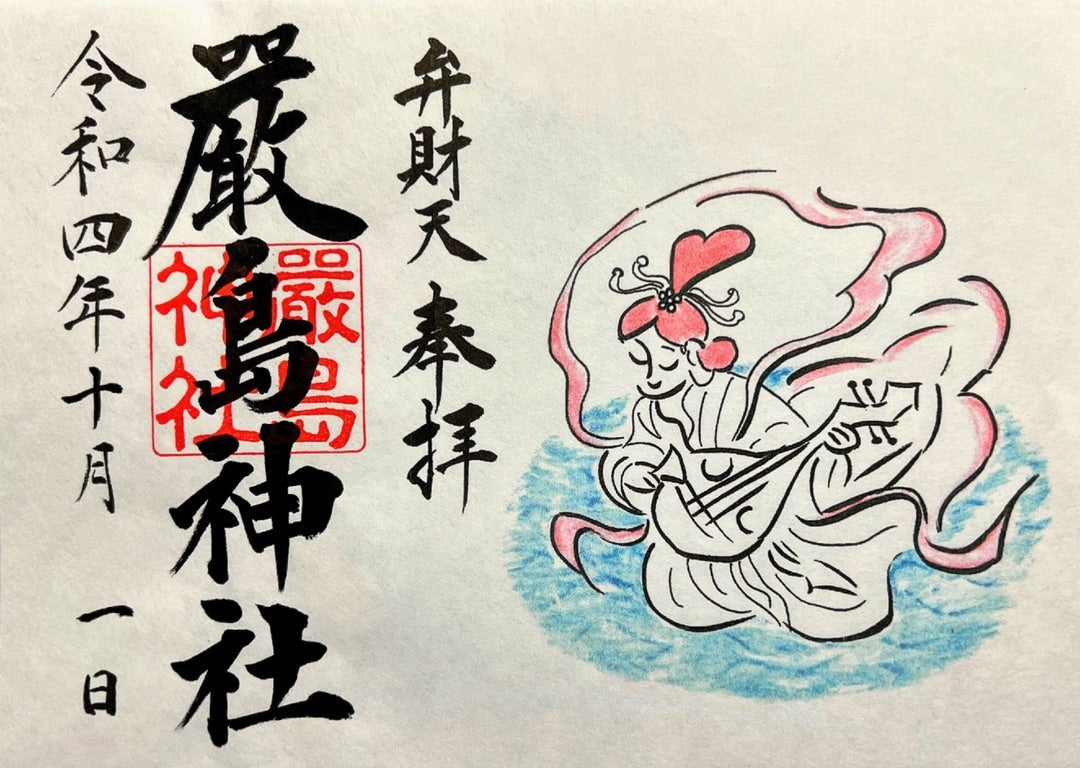 弁財天 奉拝
嚴島神社
嚴島
神社
令和四年十月 一日